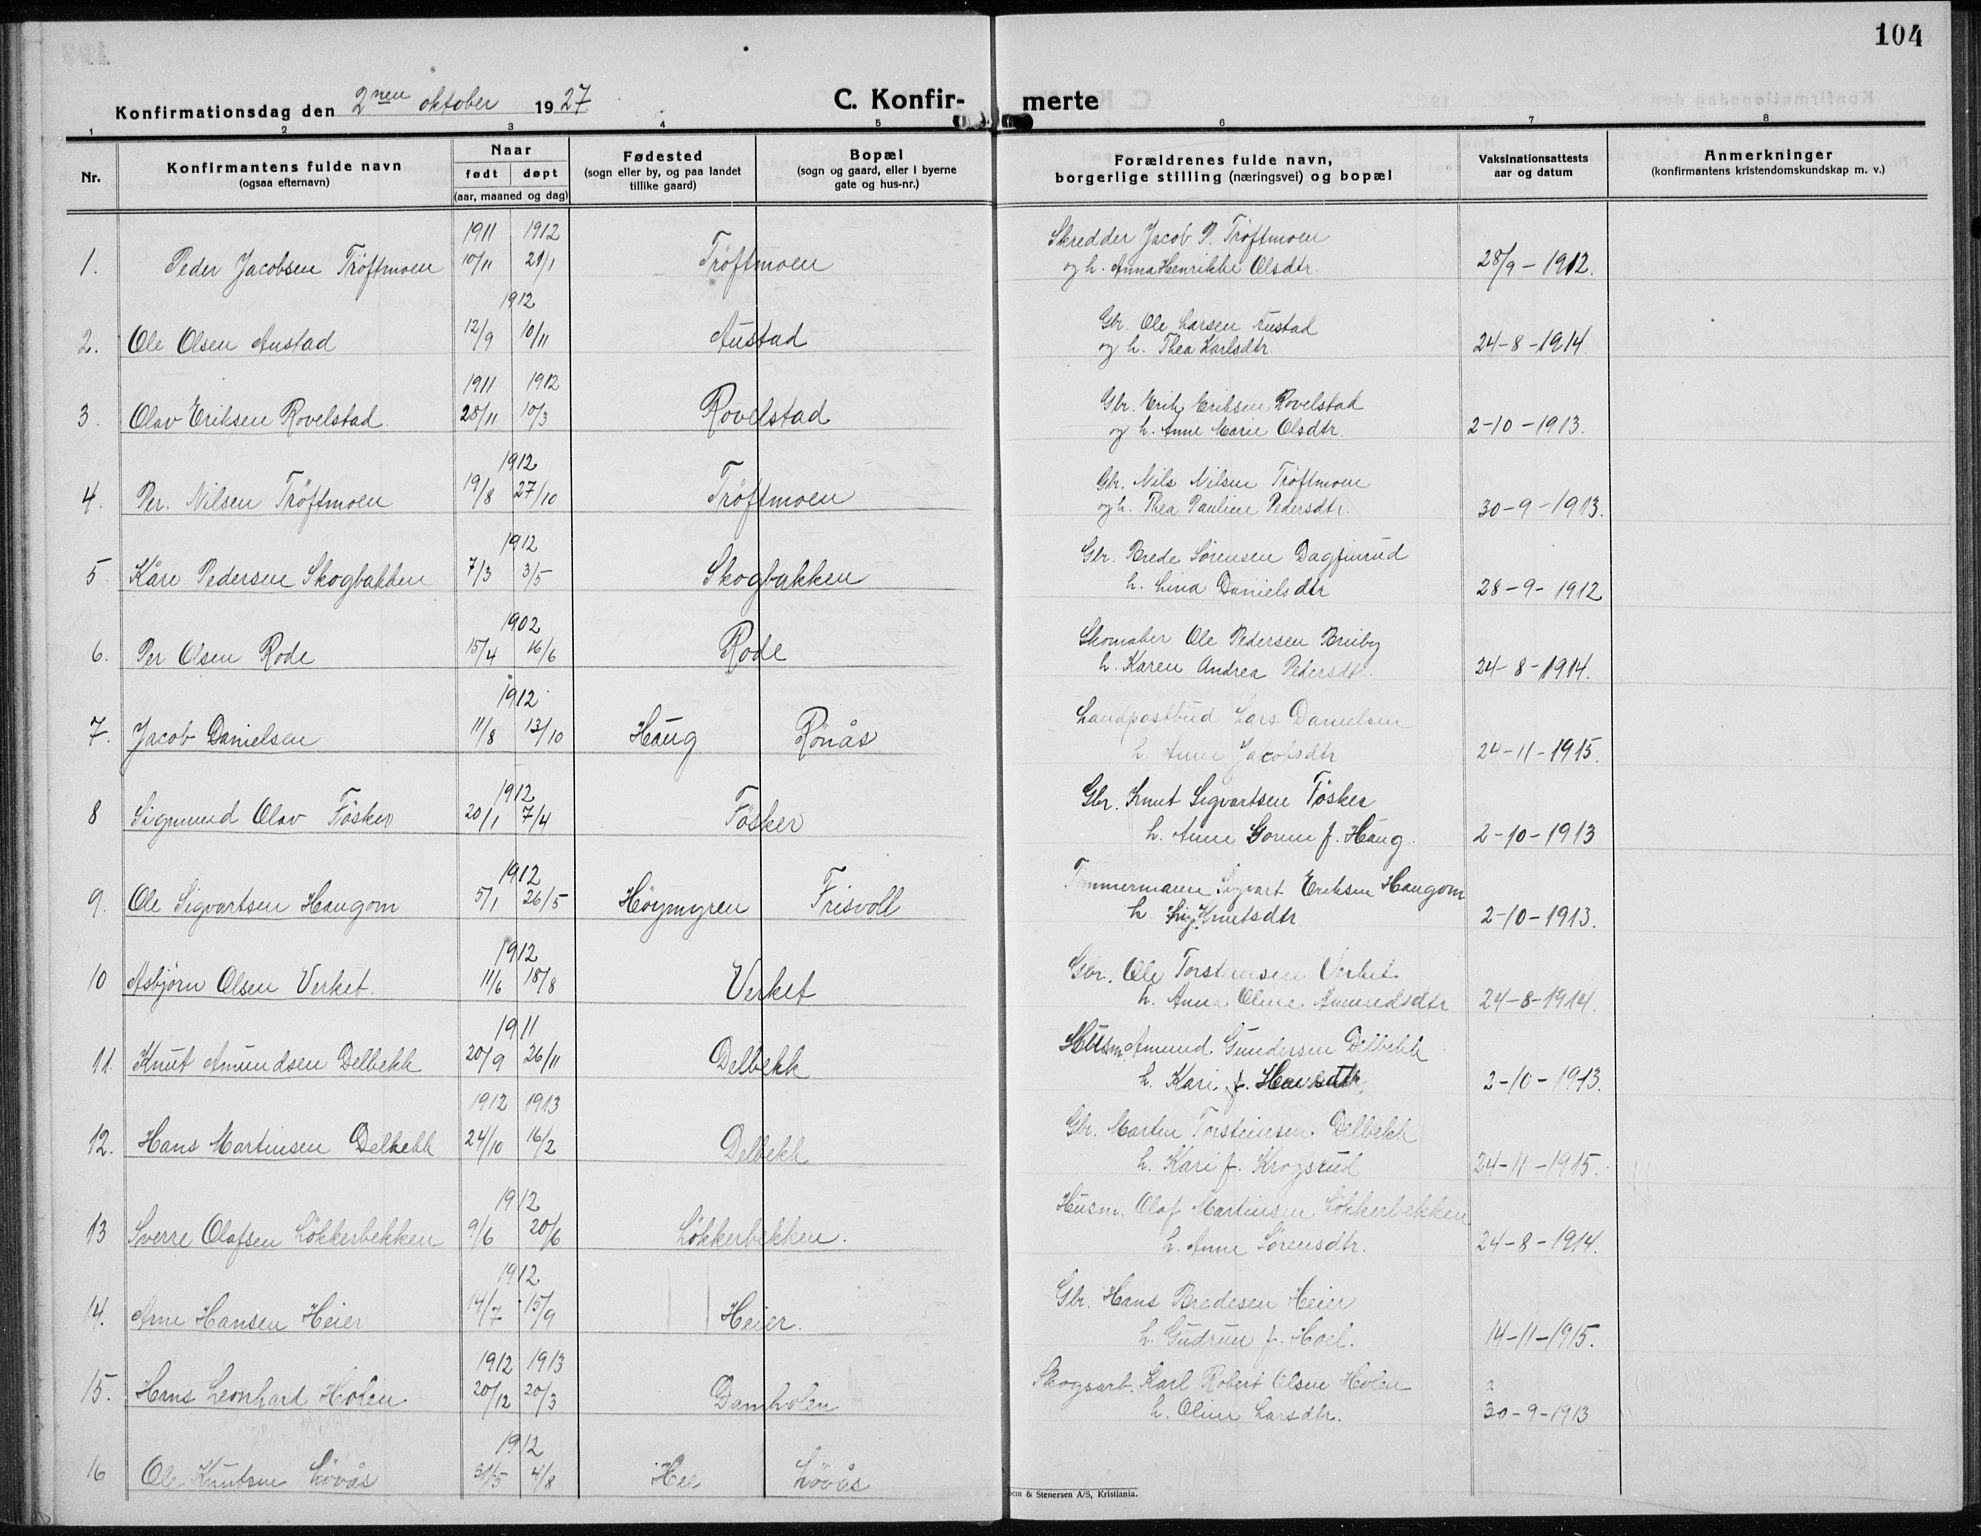 104
Konfirmationsdag den 2nen oktober 1927.
C. Konfir-
merte
1 2 3 4 5 6 7 8
Nr.
Konfirmantens fulde navn
(ogsaa efternavn)
Naar
født døpt
(aar, maaned og dag)
Fødested
(sogn eller by, og paa landet
tillike gaard)
Bopæl
(sogn og gaard, eller i byerne
gate og hus-nr.)
Forældrenes fulde navn,
borgerlige stilling (næringsvei) og bopæl
Vaksinationsattests
aar og datum
Anmerkninger
(konfirmantens kristendomskundskap m. v.)
1911 1912 Skredder Jacob P. Tröftmoen
1. Peder Jacobsen Tröftmoen 10/11 21/1 Tröftmoen og h. Anna Henrikke Olsdtr. 28/9 - 1912.
1912 Gbr. Ole Larsen Austad
2. Ole Olsen Austad 12/9 10/11 Austad og h. Thea Karlsdtr. 24-8-1914.
1911 1912 Gbr. Erik Eriksen Rovelstad
3. Olav Eriksen Rovelstad. 28/11 10/3 Rovelstad og h. Anne Marie Olsdtr. 2-10-1913.
1912 Gbr. Nils Nilsen Tröftmoen
4. Per. Nilsen Tröftmoen 19/8 27/10 Tröftmoen og h. Thea Pauline Pedersdtr. 30-9-1913.
1912 Gbr. Brede Sörensen Dagfinrud
5. Kåre Pedersen Skogbakken 7/3 3/5 Skogbakken h. Lina Danielsdtr 28-9-1912
1902 Skomaker Ole Pedersen
6. Per Olsen Rode 15/4 16/6 Rode h. Karen Andrea Pedersdtr. 24-8-1914.
1912 Landpostbud Lars Danielsen
7. Jacob Danielsen 11/8 13/10 Haug Rönås h. Anne Jacobsdtr 24-11-1915.
1912 Gbr. Knut Sigvartsen Fösker
8 Sigmund Olav Fösker 20/1 7/4 Fösker h. Anne Gorine f. Haug. 2-10-1913
1912 Tömmermann Sigvart Eriksen Haugom
9. Ole Sigvartsen Haugom 5/1 26/5 Höymyren Frisvoll h. Knutsdtr 2-10-1913.
1912 Gbr. Ole Torsteinsen Verket
10 Asbjörn Olsen Verket. 11/6 18/8 Verket h. Anna Oline Amundsdtr 24-8-1914.
1911 Husm. Amund Gundersen Delbekk
11. Knut Amundsen Delbekk 20/9 26/11 Delbekk h. Kari f. 2-10-1913.
1912 1913 Gbr. Martin Torsteinsen Delbekk
12. Hans Martinsen Delbekk 24/10 16/2 Delbekk h. Kari f. Krogsrud 24-11-1915.
1912 Husm. Olaf Martinsen Lökkerbekken
13 Sverre Olafsen Lökkerbekken 9/6 20/6 Lökkerbekken. h. Anne Sörensdtr. 24-8-1914.
1912 Gbr. Hans Bredesen Heier
14. Arne Hansen Heier 14/7 15/9 Heier. h. Gudrun f. Hoel. 14-11-1915.
1912 1913 Skogsarb. Karl Robert Olsen Holen 2
15. Hans Leonhard Holen. 20/12 20/3 Damholen h. Oline Larsdtr. 30-9-1913
1912
16 Ole Knutsen Lövås 31/5 4/8 Lövås
& Stenersen A/S, Kristiania.